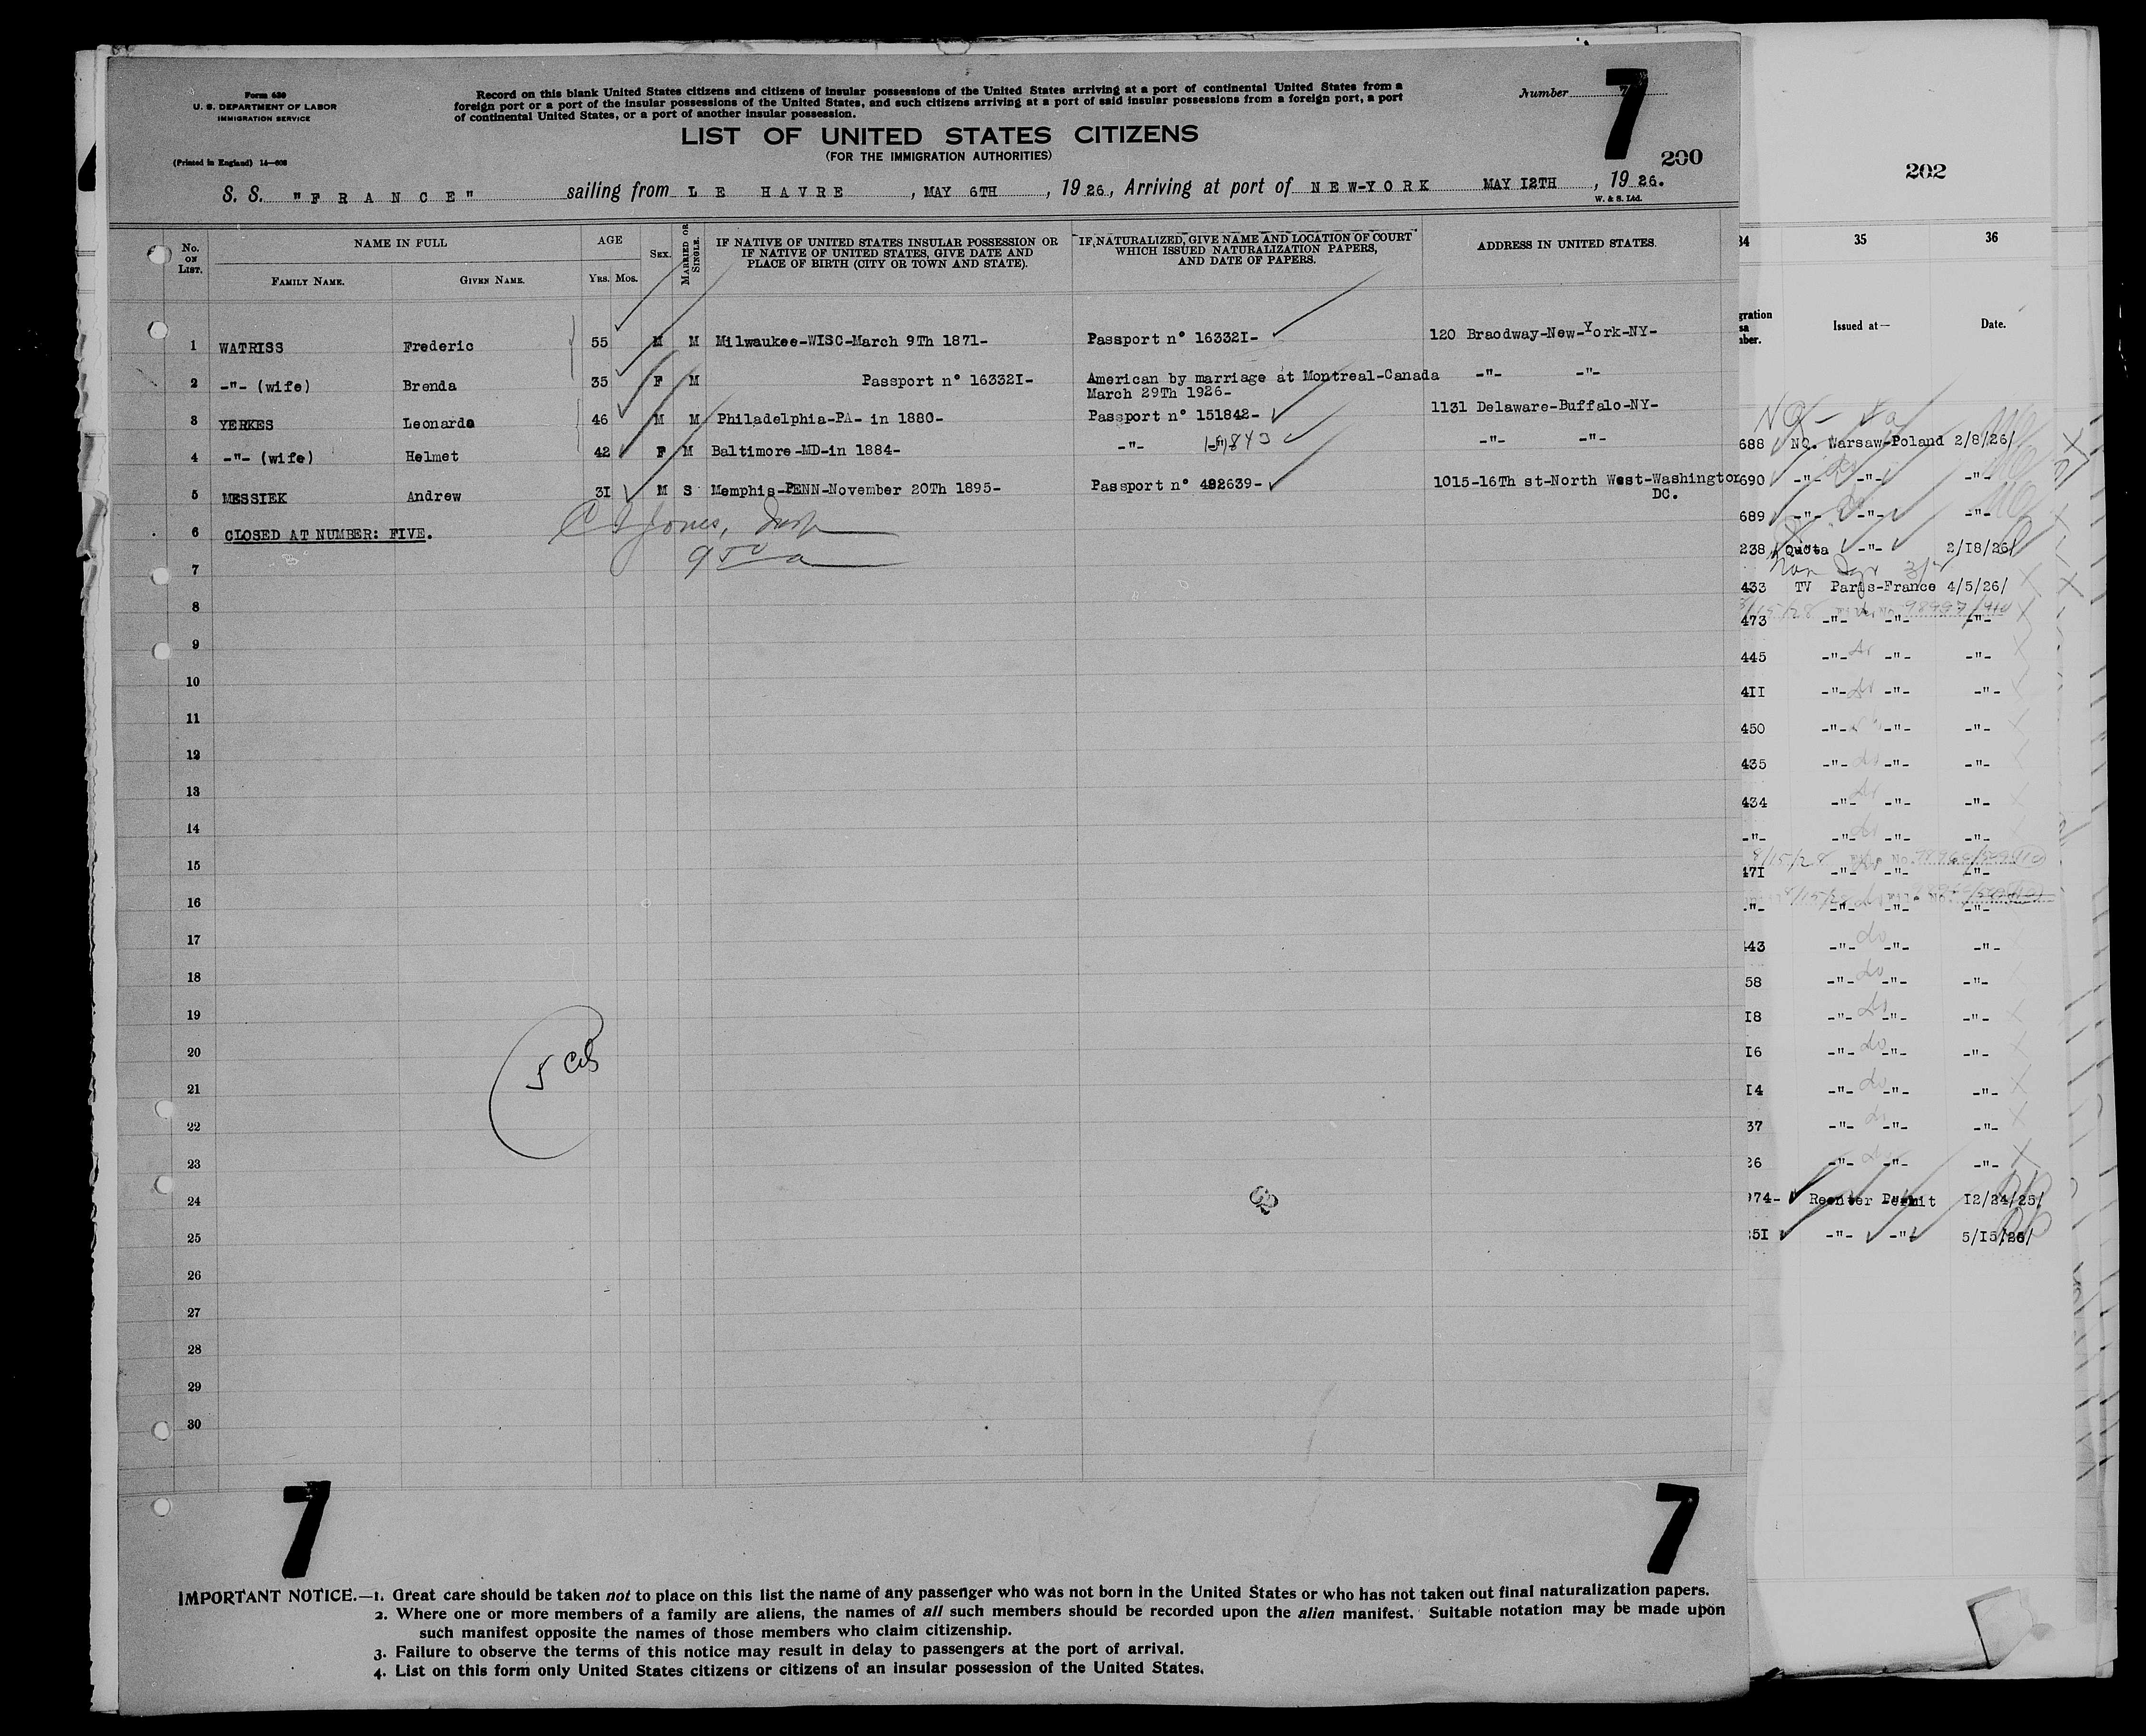 Form 630
U. S. DEPARTMENT OF LABOR
IMMIGRATION SERVICE
(Printed in England) 14—608
Record on this blank United States citizens and citizens of insular possessions of the United States arriving at a port of continental United States from a
foreign port or a port of the insular possessions of the United States, and such citizens arriving at a port of said insular possessions from a foreign port, a port
of continental United States, or a port of another insular possession.
Number 7
7
200
LIST OF UNITED STATES CITIZENS
(FOR THE IMMIGRATION AUTHORITIES)
S. S. "FRANCE" sailing from LE HAVRE, MAY 6TH, 1926, Arriving at port of NEW-YORK MAY I2TH, 1926.
W. & S. Ltd.
No. ON LIST. NAME IN FULL FAMILY NAME. GIVEN NAME. AGE YRS. MOS. SEX. MARRIED OR SINGLE.
IF NATIVE OF UNITED STATES INSULAR POSSESSION OR
IF NATIVE OF UNITED STATES, GIVE DATE AND
PLACE OF BIRTH (CITY OR TOWN AND STATE).
IF NATURALIZED, GIVE NAME AND LOCATION OF COURT
WHICH ISSUED NATURALIZATION PAPERS,
AND DATE OF PAPERS.
ADDRESS IN UNITED STATES.
1 WATRISS Frederic 55 M M Milwaukee-WISC-March 9Th 1871- Passport n° 16332I- 120 Braodway-New-York-NY-
2 -"- (wife) Brenda 35 F M Passport n° 16332I- American by marriage at Montreal-Canada -"- -"-
March 29Th 1926-
3 YERKES Leonarda 46 M M Philadelphia-PA- in 1880- Passport n° 151842- 1131 Delaware-Buffalo-NY-
4 -"- (wife) Helmet 42 F M Baltimore-MD-in 1884- -"- 151843 -"- -"-
5 MESSIEK Andrew 3I M S Memphis-PENN-November 20Th 1895- Passport n° 492639- 1015-16Th st-North West-Washington
DC.
6 CLOSED AT NUMBER: FIVE.
C I Jones, Insp
9 50 a
7
8
9
10
11
12
13
14
15
16
17
18
19
20
21
22
23
24
25
26
27
28
29
30
5 Cit
7
7
IMPORTANT NOTICE.—1. Great care should be taken not to place on this list the name of any passenger who was not born in the United States or who has not taken out final naturalization papers.
2. Where one or more members of a family are aliens, the names of all such members should be recorded upon the alien manifest. Suitable notation may be made upon
such manifest opposite the names of those members who claim citizenship.
3. Failure to observe the terms of this notice may result in delay to passengers at the port of arrival.
4. List on this form only United States citizens or citizens of an insular possession of the United States.
202
34 35 36
Issued at— Date.
688 NQ. Warsaw-Poland 2/8/26/
690 -"- -"- -"-
689 -"- -"- -"-
238 Quota -"- 2/18/26
433 TV Paris-France 4/5/26/
473 -"- -"- -"-
445 -"- do -"- -"-
4II -"- do -"- -"-
450 -"- -"- -"-
435 -"- do -"- -"-
434 -"- do -"- -"-
-"- -"- do -"- -"-
8/15/28
47I -"- -"- -"-
-"- -"- -"- -"-
443 -"- do -"- -"-
58 -"- do -"- -"-
I8 -"- do -"- -"-
I6 -"- do -"- -"-
I4 -"- do -"- -"-
37 -"- do -"- -"-
26 -"- do -"- -"-
974- Reenter Permit I2/24/25/
25I -"- -"- 5/I5/26/